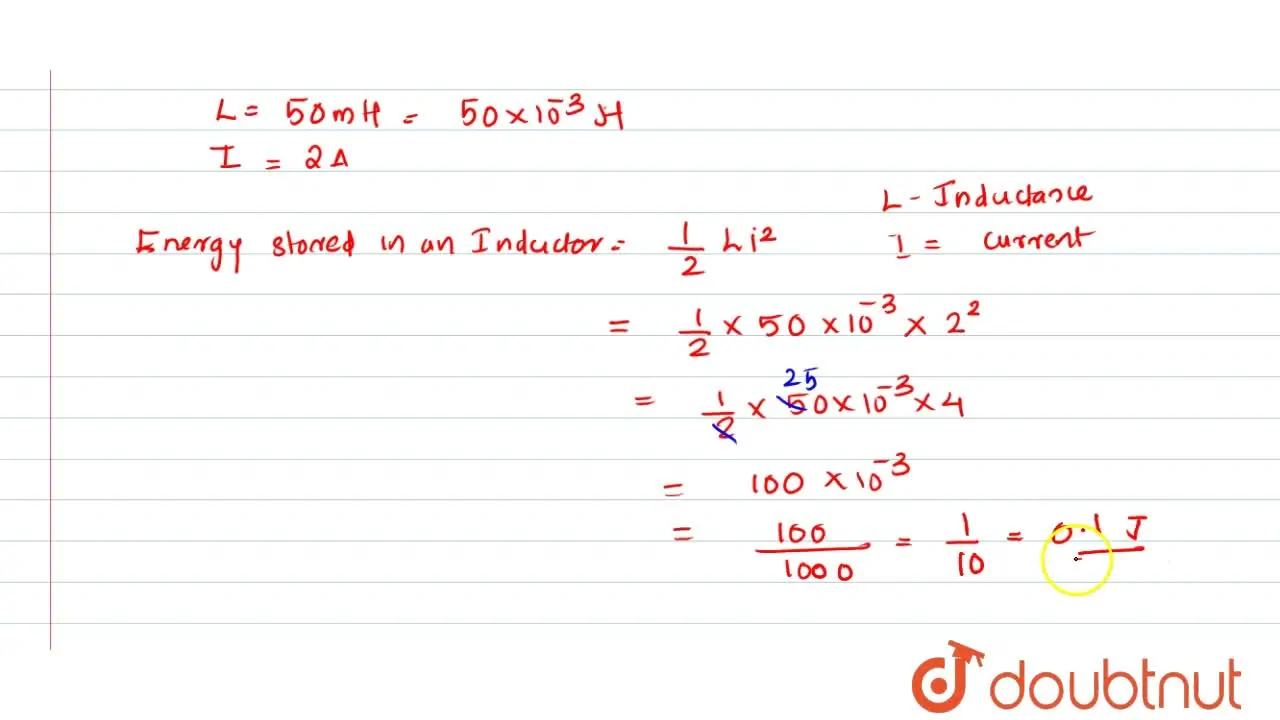 L = 50mH = 50 × 10⁻³ H
I = 2A
L - Inductance
Energy stored in an Inductor = 1/2 Li² I = current
= 1/2 × 50 × 10⁻³ × 2²
25
= 1/2 × 50 × 10⁻³ × 4
= 100 × 10⁻³
= 100/1000 = 1/10 = 0.1 J
doubtnut